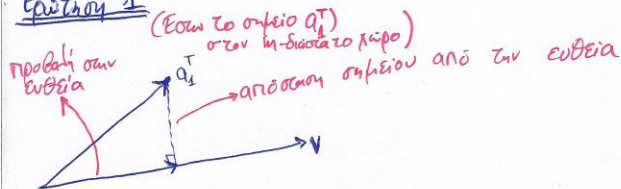 Ερώτηση 1
(Έστω το σημείο a₁ᵀ)
στον m-διάστατο χώρο)
προβολή στην
ευθεία
a₁ᵀ
απόσταση σημείου από την ευθεία
v